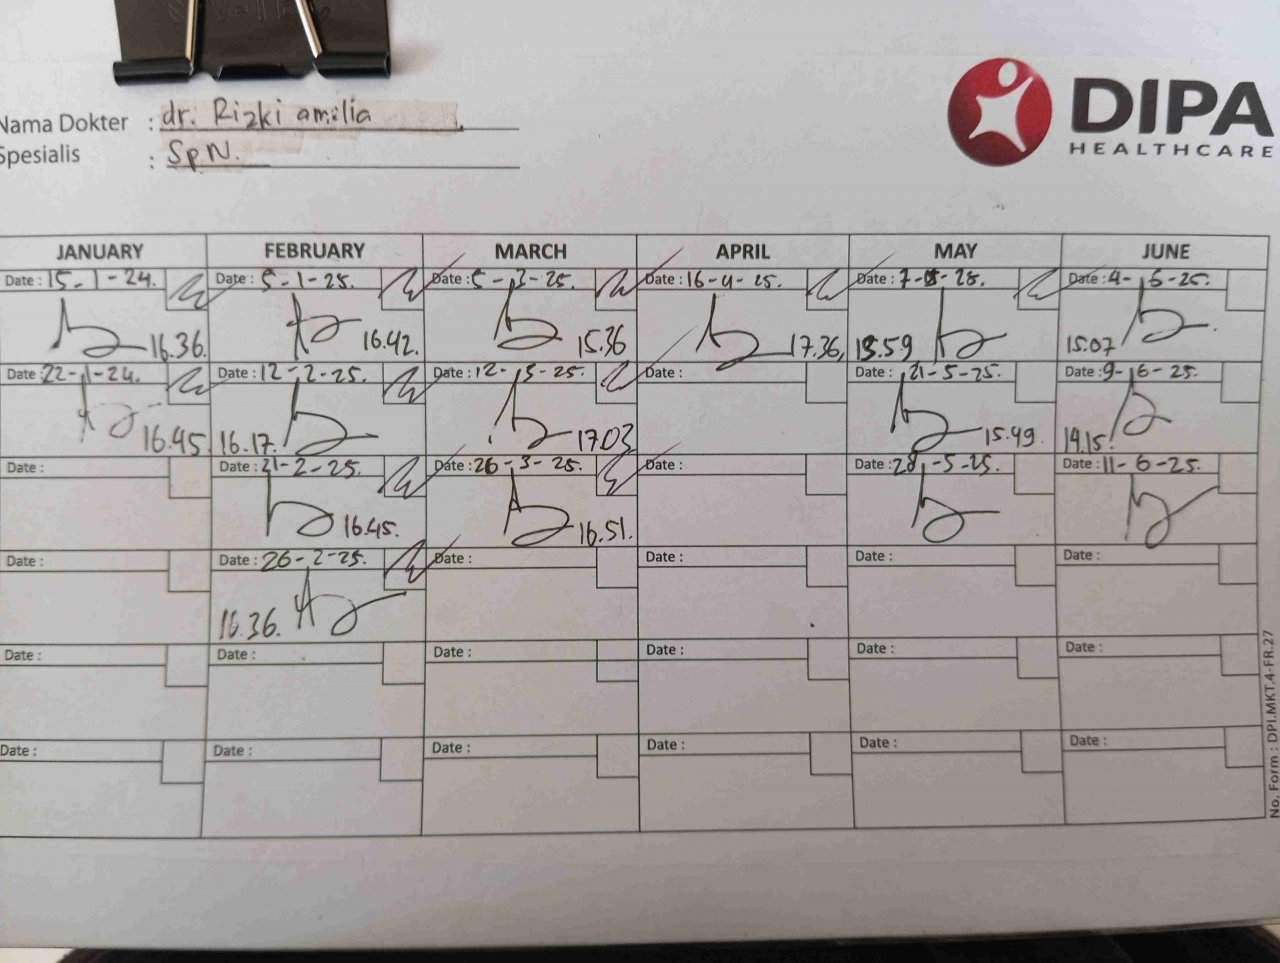 Nama Dokter : dr. Rizki amilia
Spesialis : SpN.
DIPA
HEALTHCARE
JANUARY FEBRUARY MARCH APRIL MAY JUNE
Date : 15-1-24. Date : 5-1-25. Date : 5-3-25. Date : 16-4-25. Date : 7-5-25. Date : 4-6-25.
16.36. 16.42. 15.36 17.36, 15.07
Date : 22-1-24. Date : 12-2-25. Date : 12-3-25. Date : Date : 21-5-25. Date : 9-6-25.
16.45. 16.17. 17.03 15.49. 14.15.
Date : Date : 21-2-25. Date : 26-3-25. Date : Date : 28-5-25. Date : 11-6-25.
16.45. 16.51.
Date : Date : 26-2-25. Date : Date : Date : Date :
16.36.
Date : Date : Date : Date : Date : Date :
Date : Date : Date : Date : Date : Date :
No. Form : DPI.MKT.4-FR.27